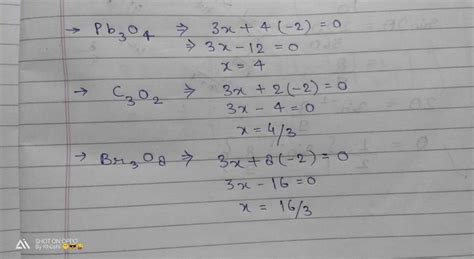 → Pb₃O₄ ⇒ 3x + 4(-2) = 0
⇒ 3x - 12 = 0
x = 4
→ C₃O₂ ⇒ 3x + 2(-2) = 0
3x - 4 = 0
x = 4/3
→ Br₃O₈ ⇒ 3x + 8(-2) = 0
3x - 16 = 0
x = 16/3
SHOT ON OPPO
By Khushi